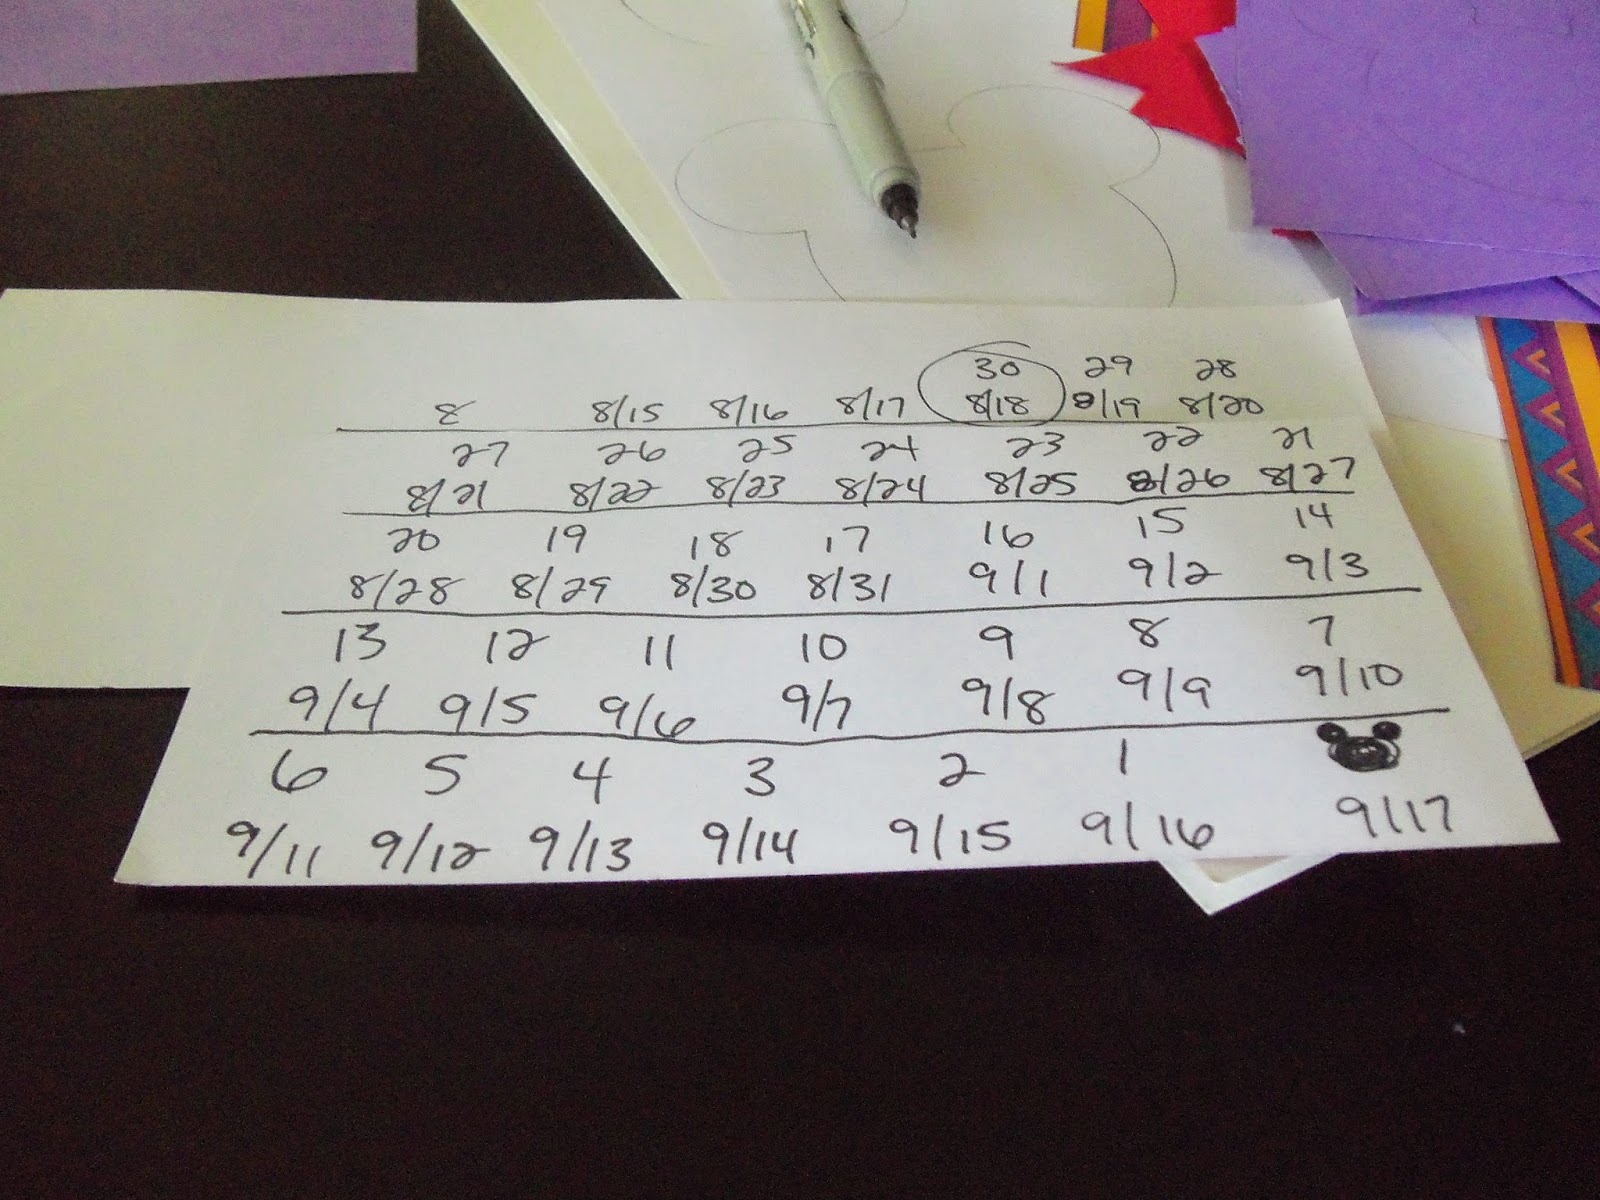 30 29 28
8 8/15 8/16 8/17 8/18 8/19 8/20
27 26 25 24 23 22 21
8/21 8/22 8/23 8/24 8/25 8/26 8/27
20 19 18 17 16 15 14
8/28 8/29 8/30 8/31 9/1 9/2 9/3
13 12 11 10 9 8 7
9/4 9/5 9/6 9/7 9/8 9/9 9/10
6 5 4 3 2 1
9/11 9/12 9/13 9/14 9/15 9/16 9/17